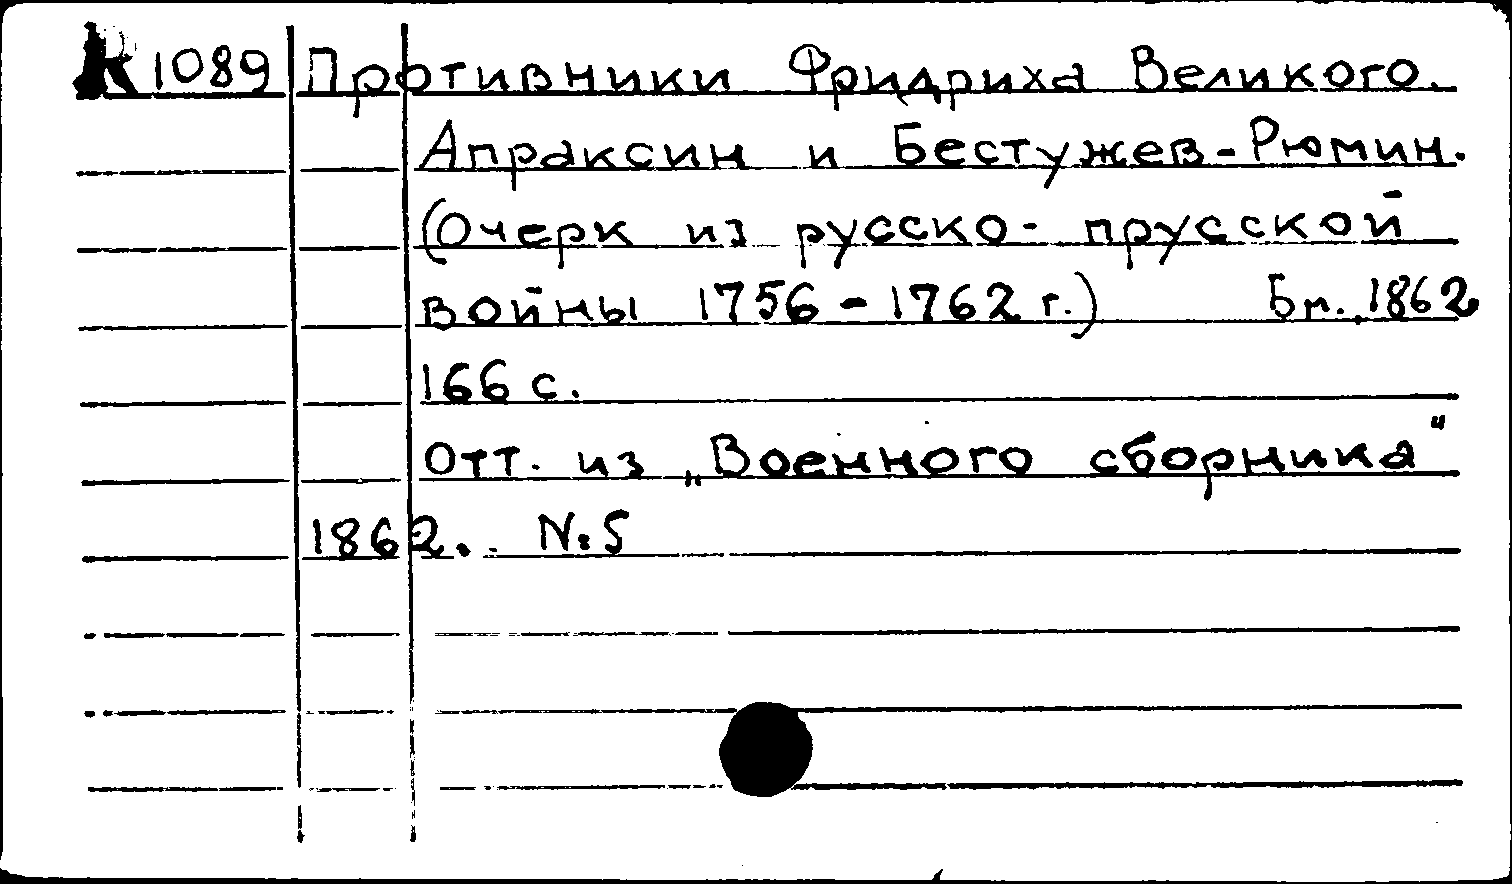 К1089 Противники Фридриха Великого.
Апраксин и Бестужев-Рюмин.
(Очерк из русско- прусской
войны 1756-1762 г.) Бм., 1862
166 с.
Отт. из „Военного сборника"
1862. N:5